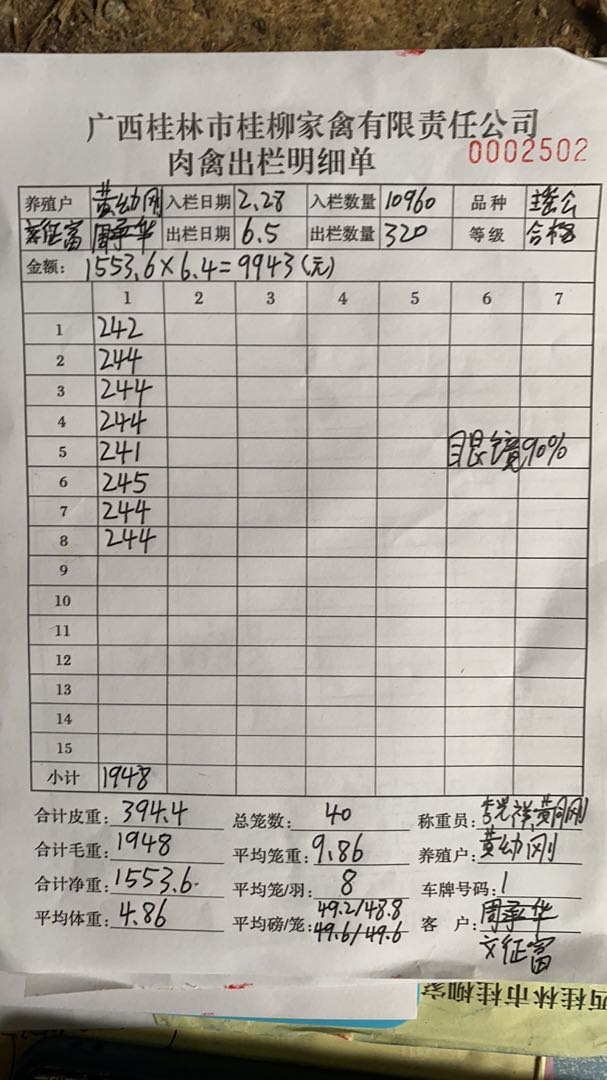 广西桂林市桂柳家禽有限责任公司
肉禽出栏明细单 0002502
养殖户 黄幼刚 入栏日期 2.28 入栏数量 10960 品种
文征富 周承华 出栏日期 6.5 出栏数量 320 等级 合格
金额: 1553.6×6.4=9943(元)
1 2 3 4 5 6 7
1 242
2 244
3 244
4 244
5 241 眼镜90%
6 245
7 244
8 244
9
10
11
12
13
14
15
小计 1948
合计皮重: 394.4 总笼数: 40 称重员:
合计毛重: 1948 平均笼重: 9.86 养殖户: 黄幼刚
合计净重: 1553.6 平均笼/羽: 8 车牌号码: 1
平均体重: 4.86 平均磅/笼: 49.2/48.8 客户: 周承华
49.6/49.6 文征富
西桂林市桂柳家